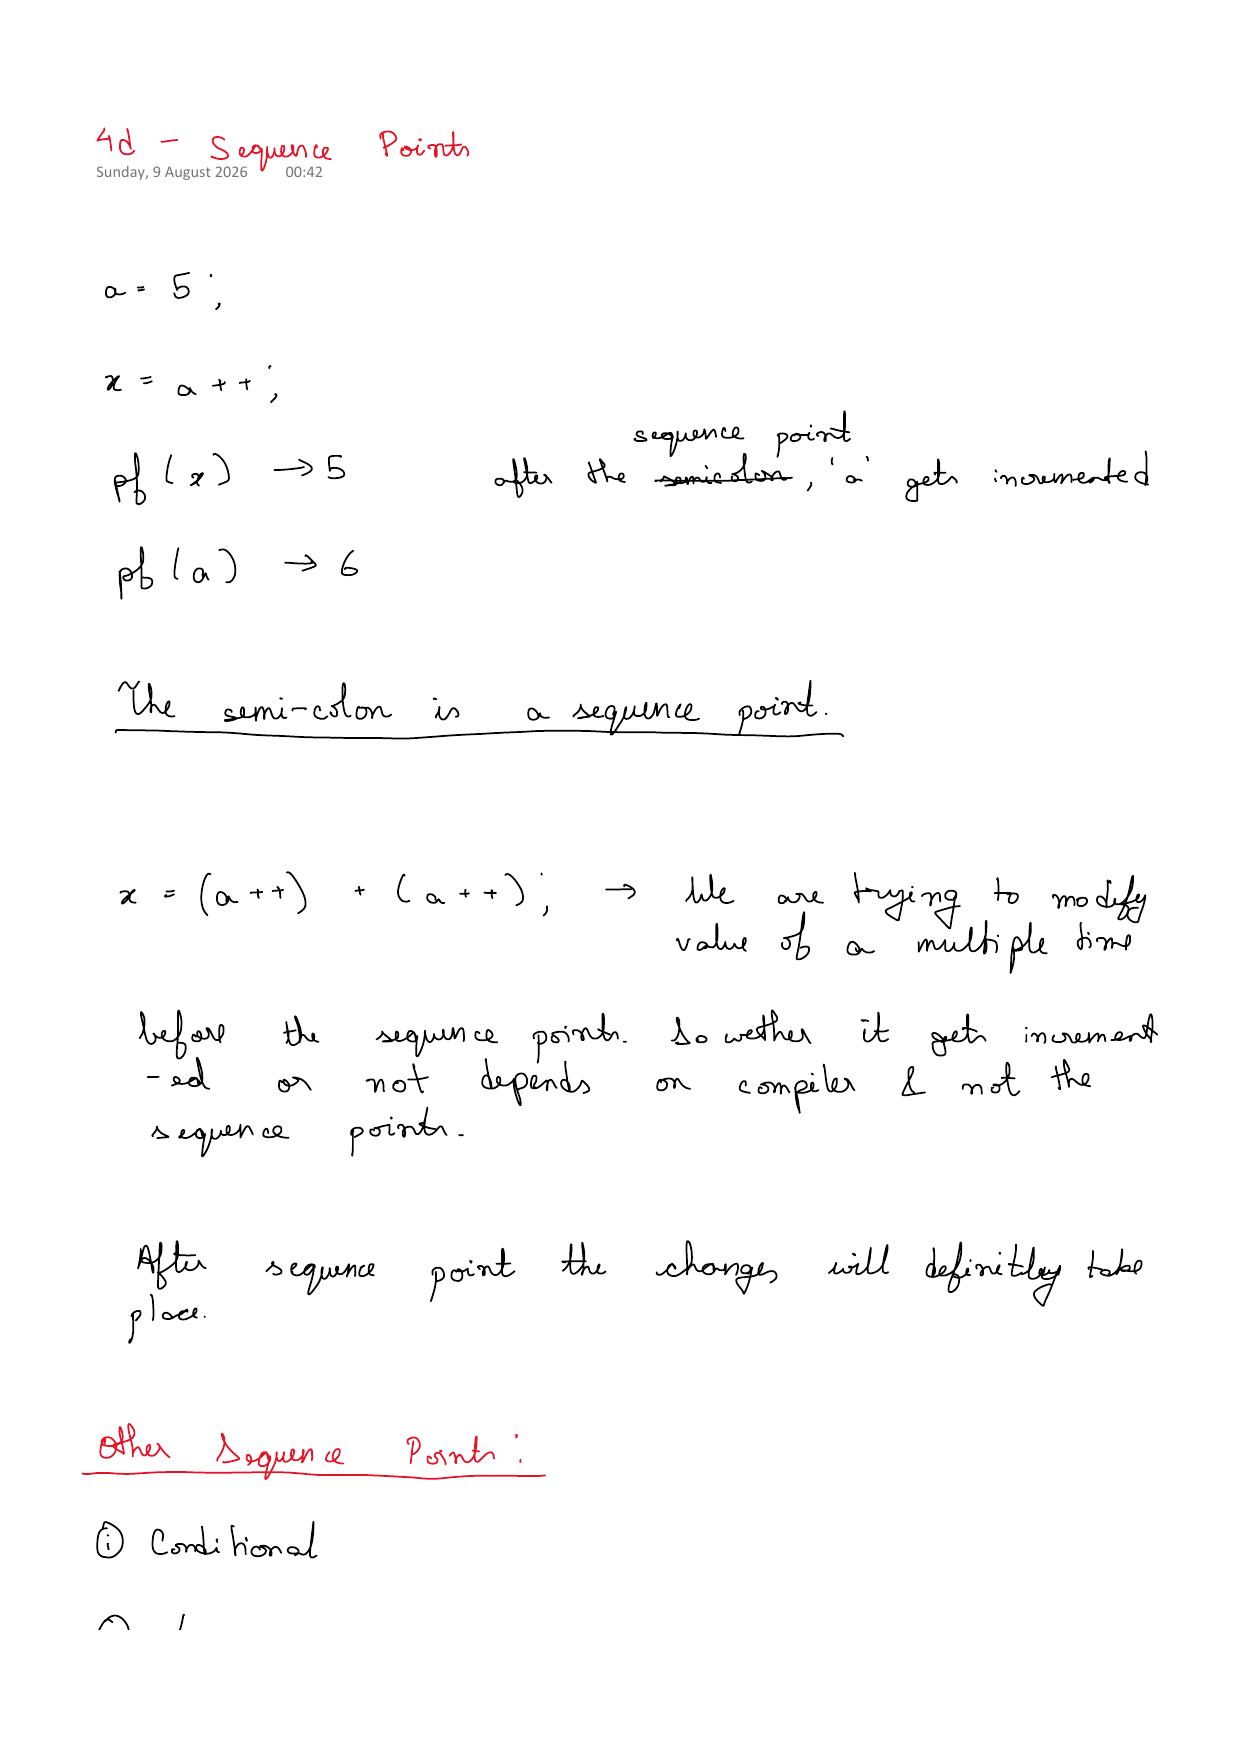 4d - Sequence Points
Sunday, 9 August 2026 00:42
a = 5 ;
x = a ++ ;
sequence point
pf ( x ) → 5 after the semicolon, 'a' gets incremented
pf ( a ) → 6
The semi-colon is a sequence point.
x = (a ++) + ( a ++) ; → We are trying to modify
value of a multiple time
before the sequence points. So wether it gets increment
-ed or not depends on compiler & not the
sequence points.
After sequence point the changes will definitley take
place.
Other Sequence Points :
(i) Conditional